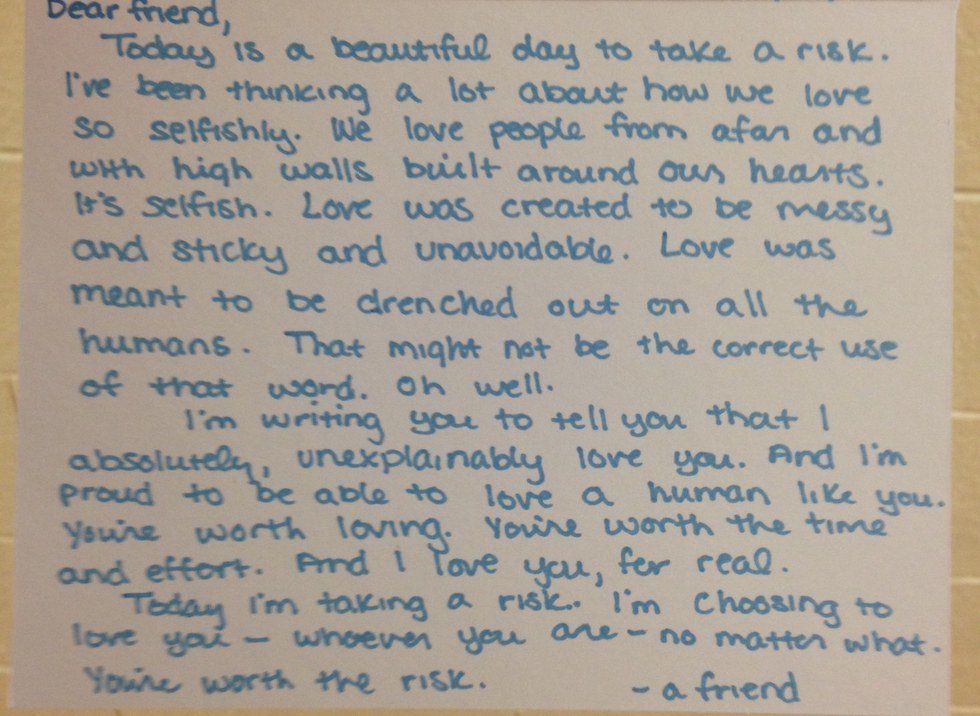 Dear friend,
Today is a beautiful day to take a risk.
I've been thinking a lot about how we love
so selfishly. We love people from afar and
with high walls built around our hearts.
It's selfish. Love was created to be messy
and sticky and unavoidable. Love was
meant to be drenched out on all the
humans. That might not be the correct use
of that word. Oh well.
I'm writing you to tell you that I
absolutely, unexplainably love you. And I'm
proud to be able to love a human like you.
You're worth loving. You're worth the time
and effort. And I love you, for real.
Today I'm taking a risk. I'm choosing to
love you - whoever you are - no matter what.
You're worth the risk. - a friend